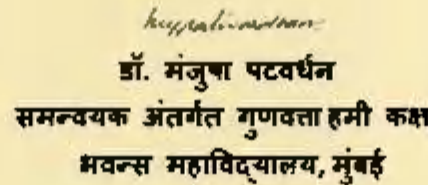 डॉ. मंजुषा पटवर्धन
समन्वयक अंतर्गत गुणवत्ता हमी कक्ष
भवन्स महाविद्यालय, मुंबई